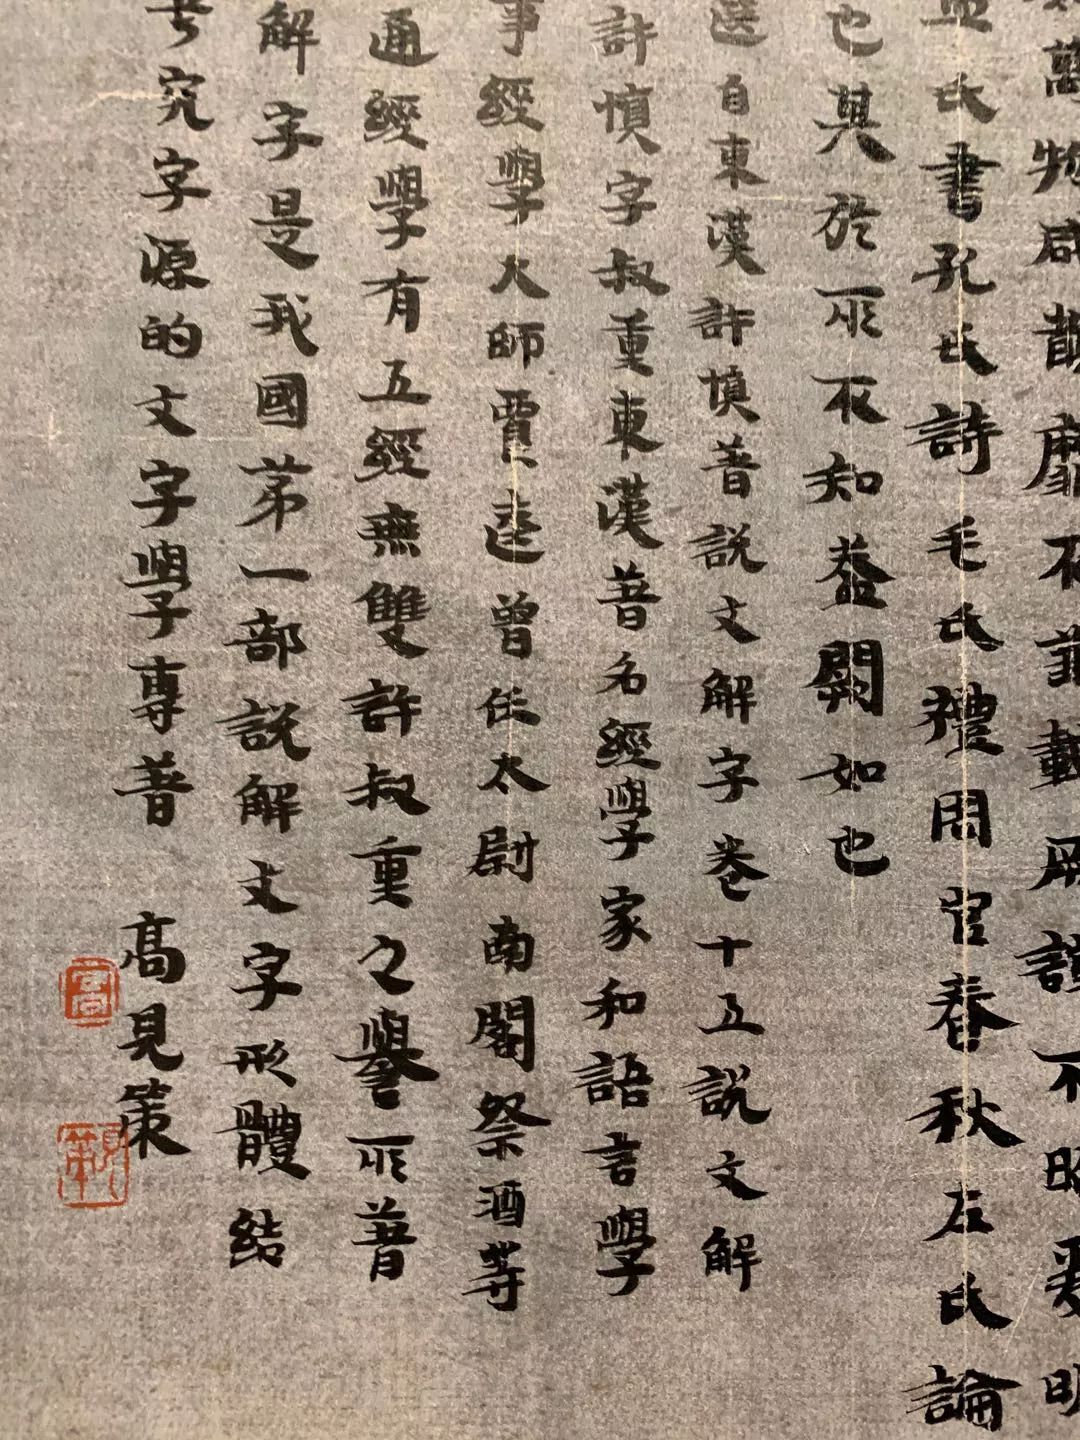 萬物咸覩靡不兼載厥誼不昭爰明
孟氏書孔氏詩毛氏禮周官春秋左氏論
也其於所不知葢闕如也
選自東漢許慎著説文解字卷十五説文解
許慎字叔重東漢著名經學家和語言學
事經學大師賈逵曾任太尉南閣祭酒等
通經學有五經無雙許叔重之譽所著
解字是我國苐一部説解文字形體結
考究字源的文字學專著
高見策